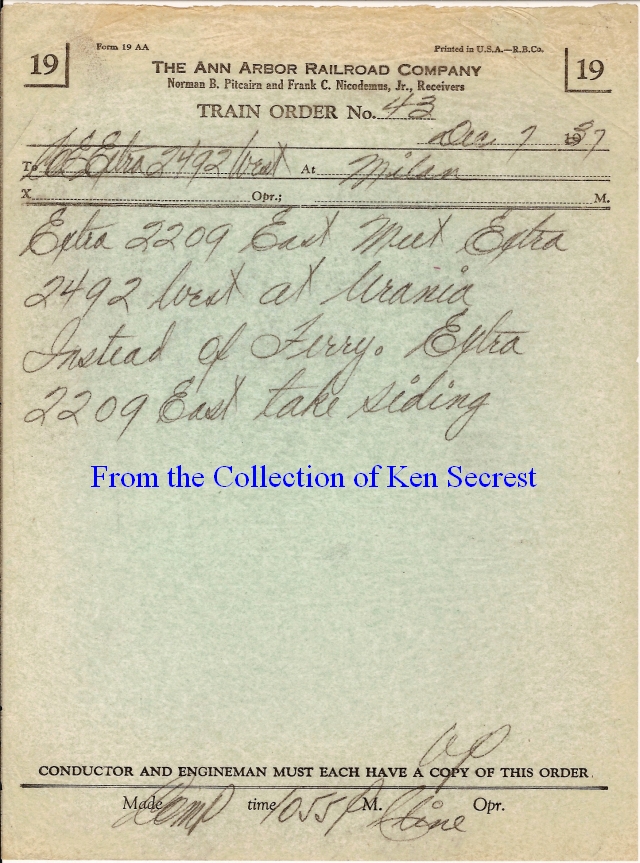 Form 19 AA
Printed in U.S.A.—R.B.Co.
19
19
THE ANN ARBOR RAILROAD COMPANY
Norman B. Pitcairn and Frank C. Nicodemus, Jr., Receivers
TRAIN ORDER No. 43
Dec 7 1937
To C&E Extra 2492 West At Milan
X Opr.; M.
Extra 2209 East Meet Extra
2492 West at Urania
Instead of Ferry. Extra
2209 East take siding
From the Collection of Ken Secrest
CONDUCTOR AND ENGINEMAN MUST EACH HAVE A COPY OF THIS ORDER.
Made Comp time 1055 P M. Cline Opr.